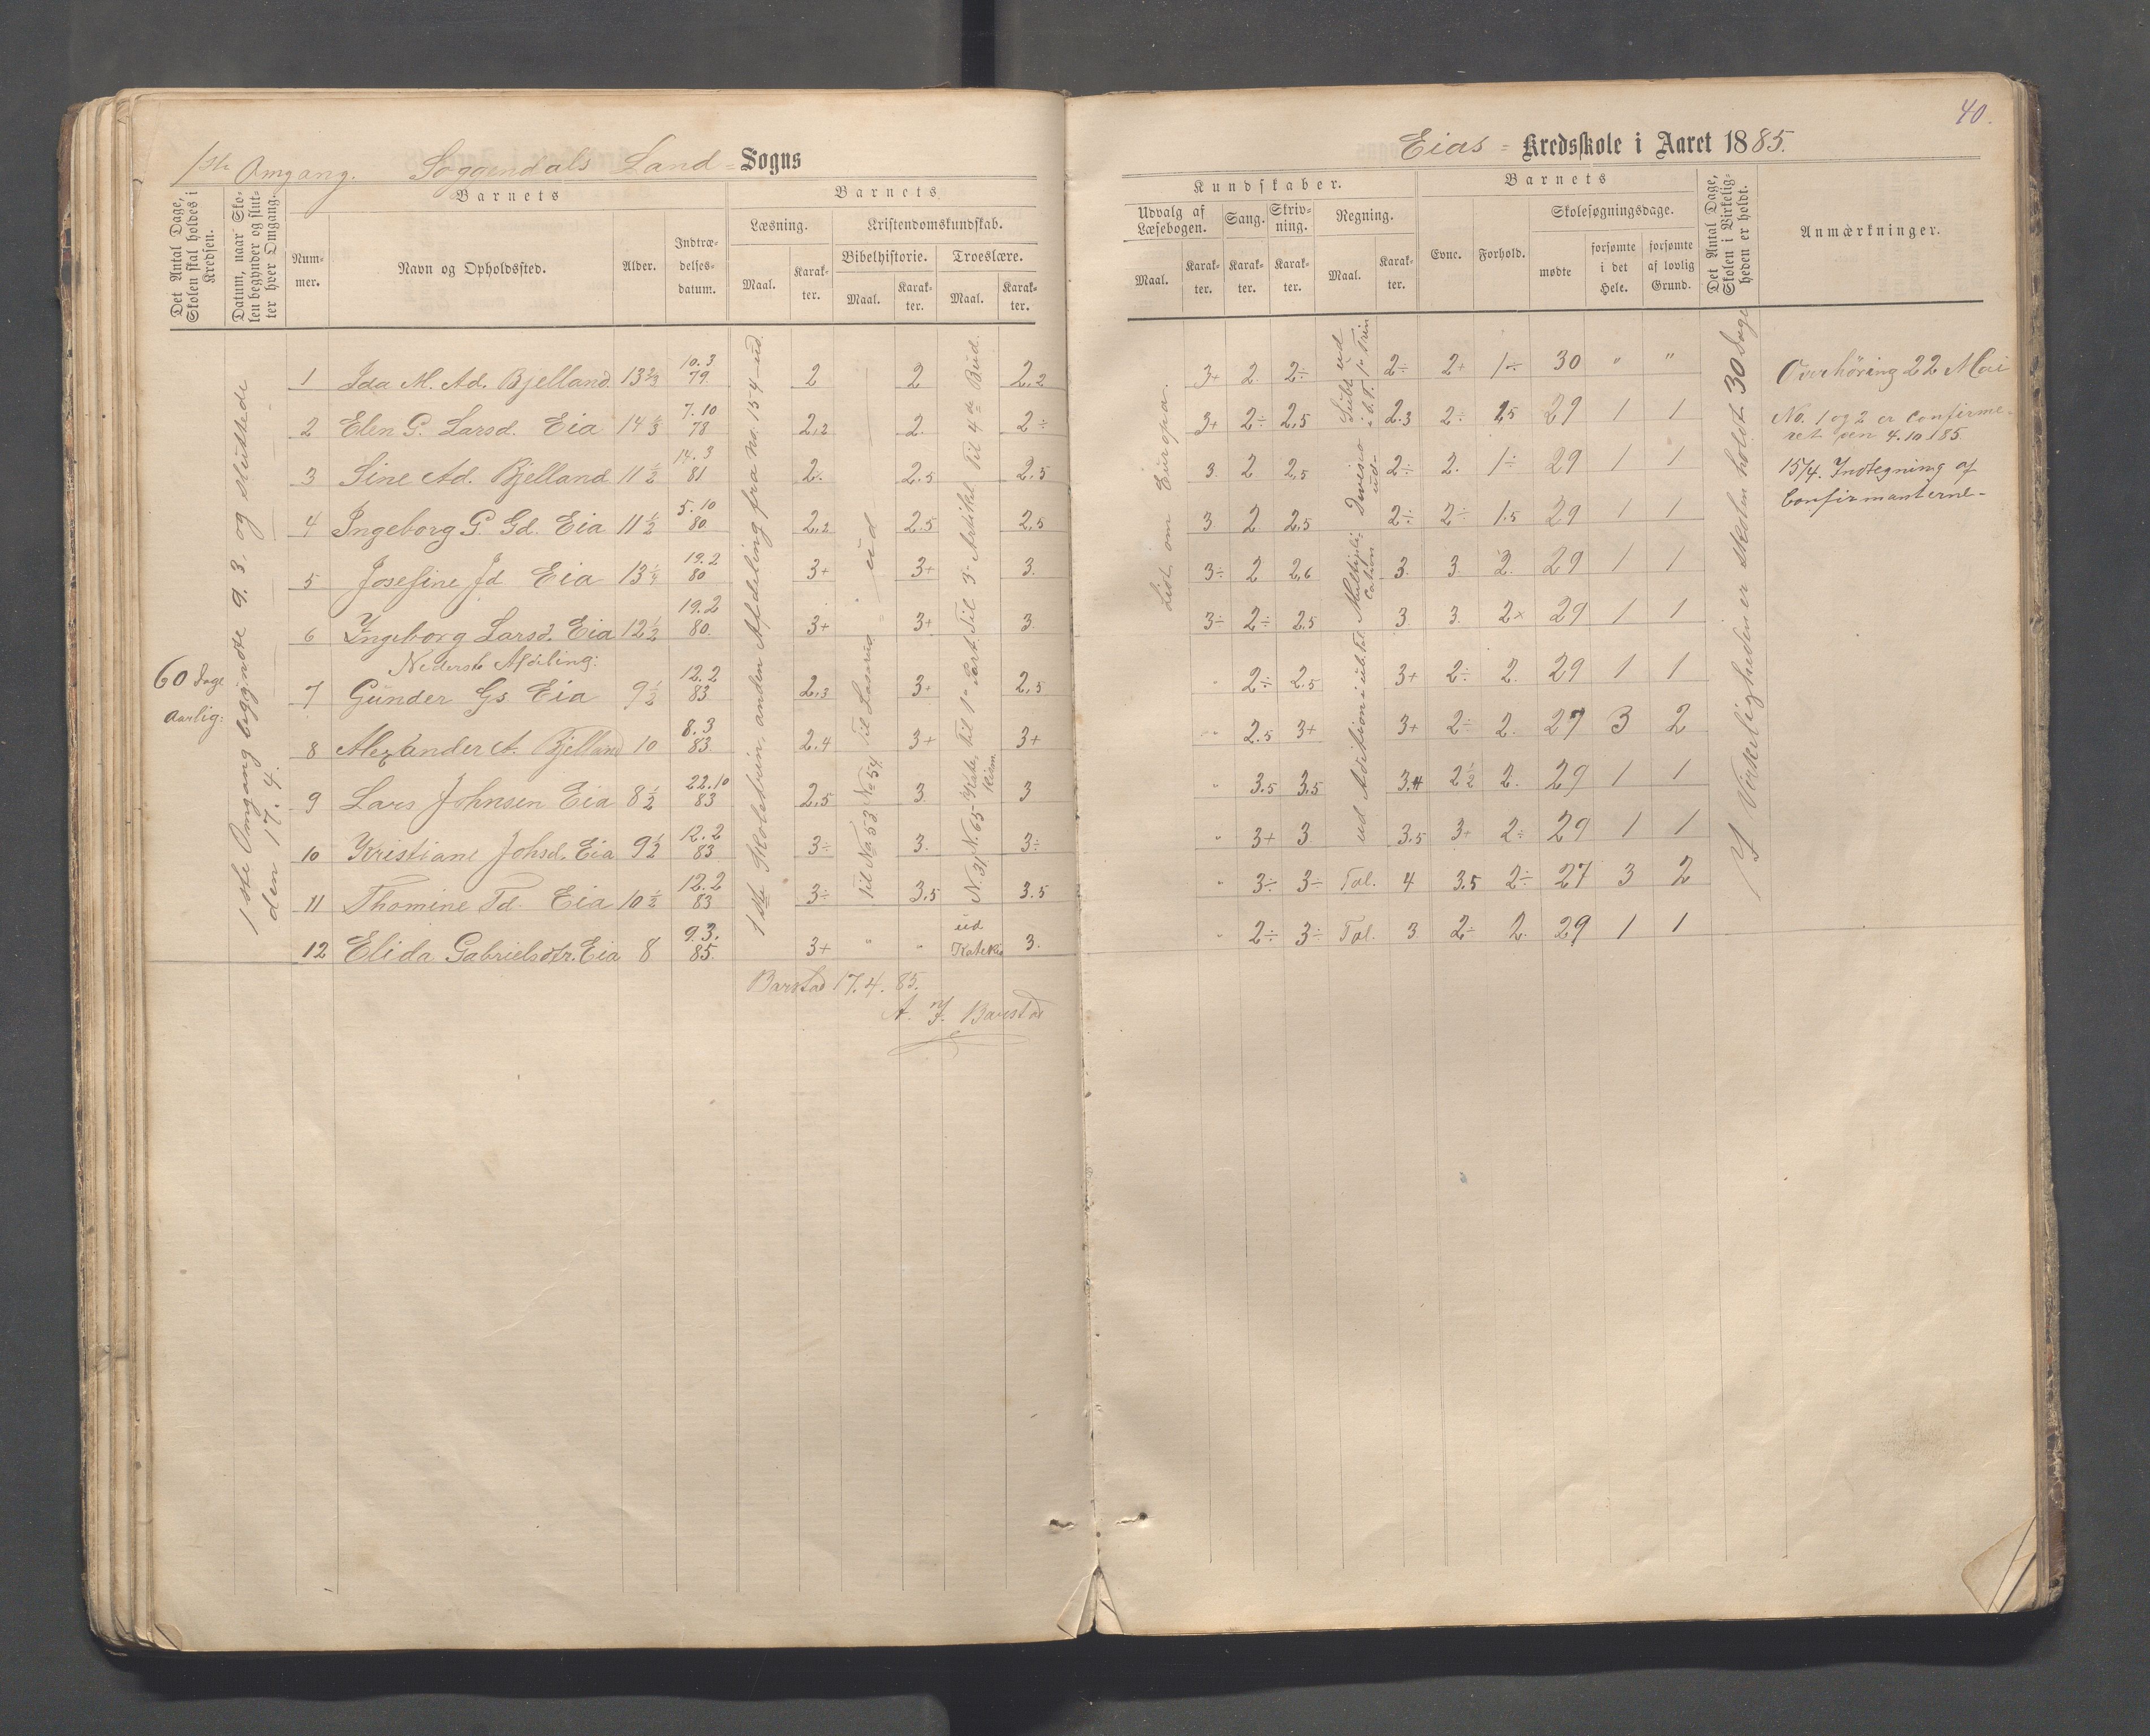 40.
1ste Omgang. Soggendals Land = Sogns
Eias = Kredsskole i Aaret 1885.
Det Antal Dage, Skolen skal holdes i Kredsen.
Datum, naar Skolen begynder og slutter hver Omgang.
Barnets
Nummer.
Navn og Opholdssted.
Alder.
Indtrædelsesdatum.
Barnets
Læsning.
Maal.
Karakter.
Kristendomskundskab.
Bibelhistorie.
Maal.
Karakter.
Troeslære.
Maal.
Karakter.
Kundskaber.
Udvalg af Læsebogen.
Maal.
Karakter.
Sang.
Karakter.
Skrivning.
Karakter.
Regning.
Maal.
Karakter.
Barnets
Evne.
Forhold.
Skolesøgningsdage.
mødte
forsømte i det Hele.
forsømte af lovlig Grund.
Det Antal Dage, Skolen i Virkeligheden er holdt.
Anmærkninger.
60 Dage
Aarlig:
1ste Omgang begyndte 9. 3. og sluttede
den 17. 4.
1ste Skoletrin, anden Afdeling fra no. 154 - ud.
Til No 53 No 54 Til Lasarus = ud
N. 31 N. 65 Til 3die Artikel Til 4de Bud.
ud
Lidt om Europa.
Division
ud
Multiplication
ud Adition
I Virkeligheden er skolen holdt 30 Dage
1 Ida M. Ad. Bjelland 13 2/3 10.3 79 2 2 2,2 3+ 2 2÷ 2÷ 2+ 1÷ 30 " "
2 Elen G. Larsd. Eia 14 7.10 78 2,2 2. 2÷ 3+ 2÷ 2,5 2.3 2÷ 1,5 29 1 1
3 Sine Ad. Bjelland 11 1/2 14.3 81 2. 2.5 2,5 3 2 2,5 2÷ 2. 1÷ 29 1 1
4 Ingeborg G. Gd. Eia 11 1/2 5.10 80 2,2 2.5 2,5 3 2 2,5 2÷ 2÷ 1.5 29 1 1
5 Josefine Jd Eia 13 1/4 19.2 80 3+ 3+ 3. 3÷ 2 2,6 3. 3. 2. 29 1 1
6 Ingeborg Larsd. Eia 12 1/2 19.2 80. 3+ 3+ 3. 3÷ 2÷ 2.5 3. 3. 2 29 1 1
Nederste Afdeling:
7 Gunder Gs Eia 9 1/2 12.2 83 2,3 3+ 2,5 " 2÷ 2.5 3+ 2÷ 2. 29 1 1
8 Alexander A. Bjelland 10 8.3 83 2.4 3+ 3+ " 2.5 3+ 3+ 2÷ 2. 27 3 2
9 Lars Johnsen Eia 8 1/2 22.10 83 2,5 3. 3 " 3.5 3,5 3.4 2 1/2 2. 29 1 1
10 Kristiane Johsd. Eia 9 1/2 12.2 83 3÷ 3. 3÷ " 3+ 3 3.5 3+ 2÷ 29 1 1
11 Thomine Td. Eia 10 1/2 12.2 83 3÷ 3,5 3.5 " 3÷ 3÷ Tal. 4 3.5 2÷ 27 3 2
12 Elida Gabrielsdtr. Eia 8 9.3. 85. 3+ " " 3. " 2÷ 3÷ Tal. 3 2÷ 2. 29 1 1
Barstad 17.4.85.
A. J. Barstad
Overhöring 22 Mai
No. 1 og 2 er Confirme-
ret den 4.10.85.
15/4. Indtegning af
Confirmanterne-